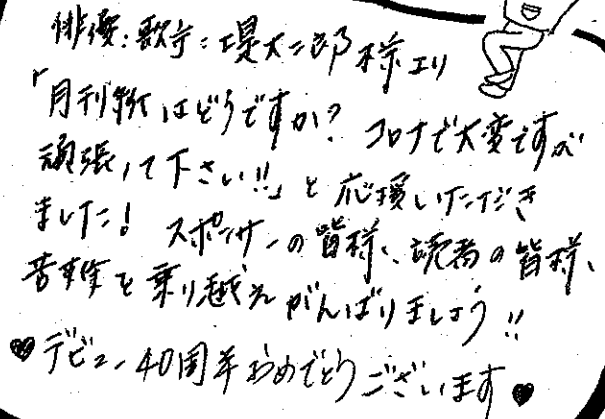 俳優・歌手:堤大二郎様より
「月刊新はどうですか? コロナで大変ですが
頑張って下さい!!」と応援いただき
ました! スポンサーの皆様、読者の皆様、
苦難を乗り越えがんばりましょう!!
♥デビュー40周年おめでとうございます♥